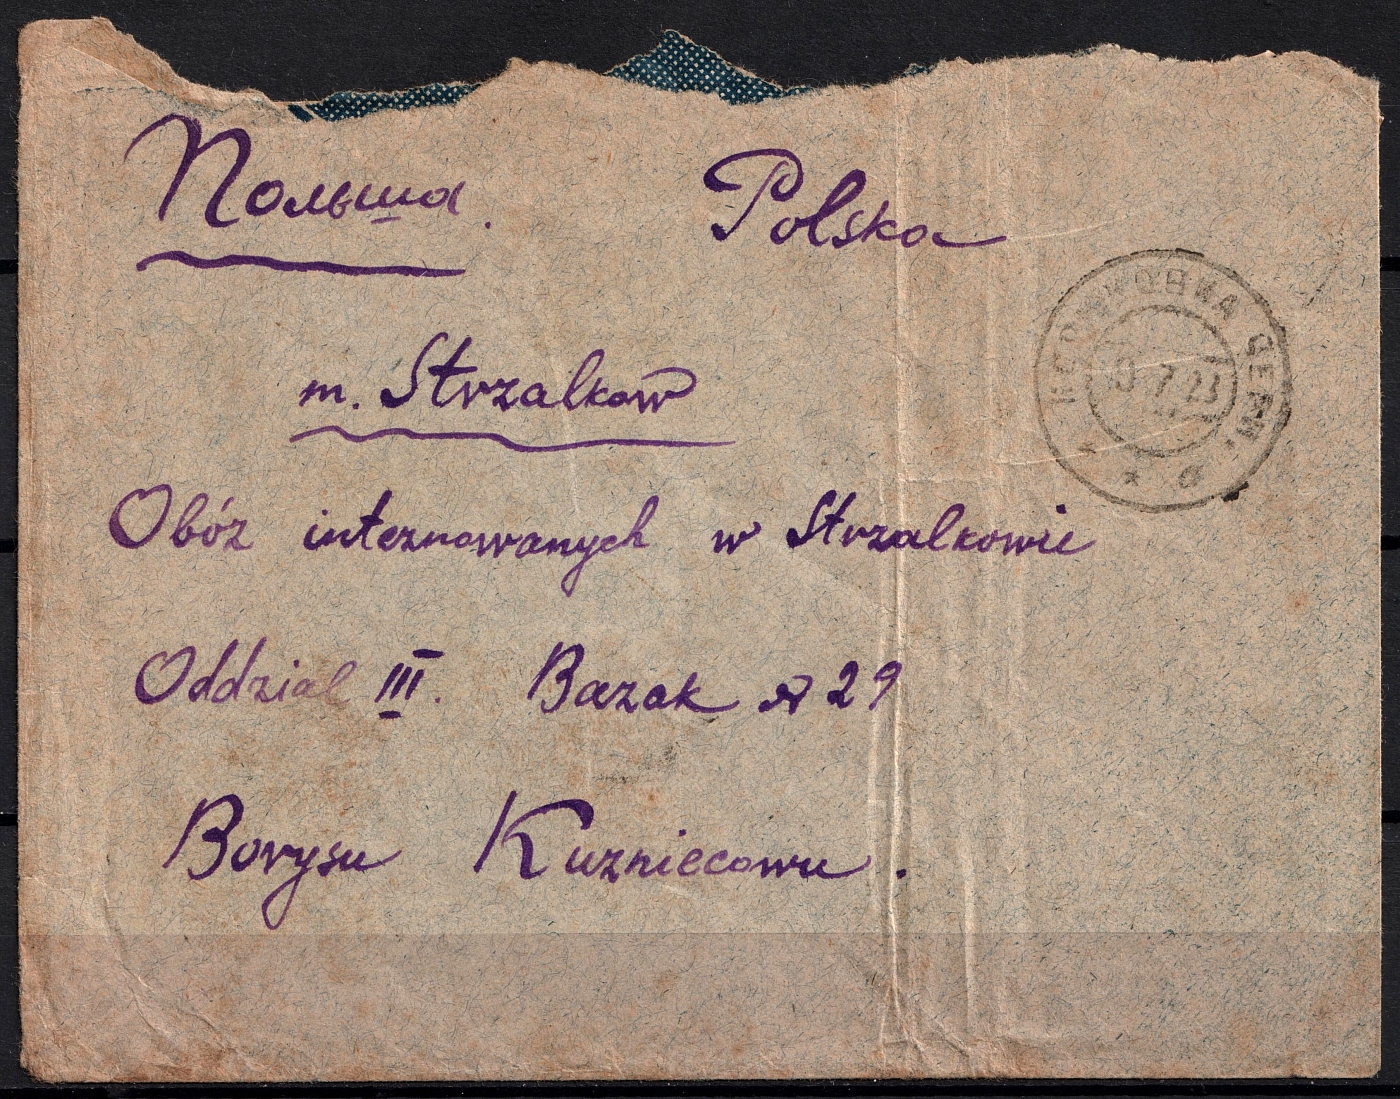 Польша. Polska
m. Strzalkow
Obóz internowanych w Strzalkowie
Oddzial III. Bazak № 29
Borysu Kuzniecowu.
7 23